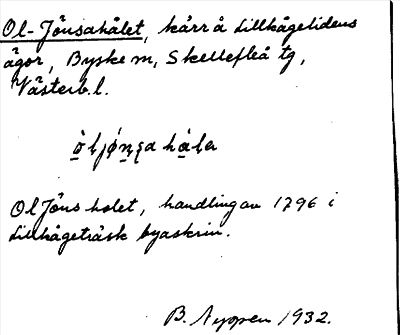 Ol-Jönsahålet, kärr å Lillkågetidens
ägor, Byske m, Skellefteå tg,
Västerb.l.
Ol Jöns holet, handling av 1796 i
Lillkågeträsk byaskrin.
B. Nyppen 1932.